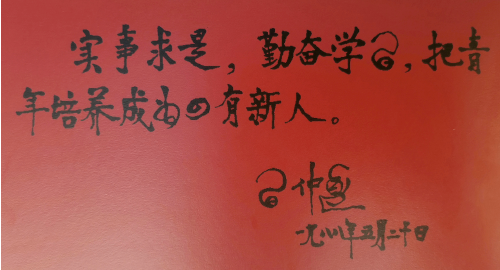 实事求是，勤奋学习，把青
年培养成为四有新人。
习仲勋
一九八八年五月二十日